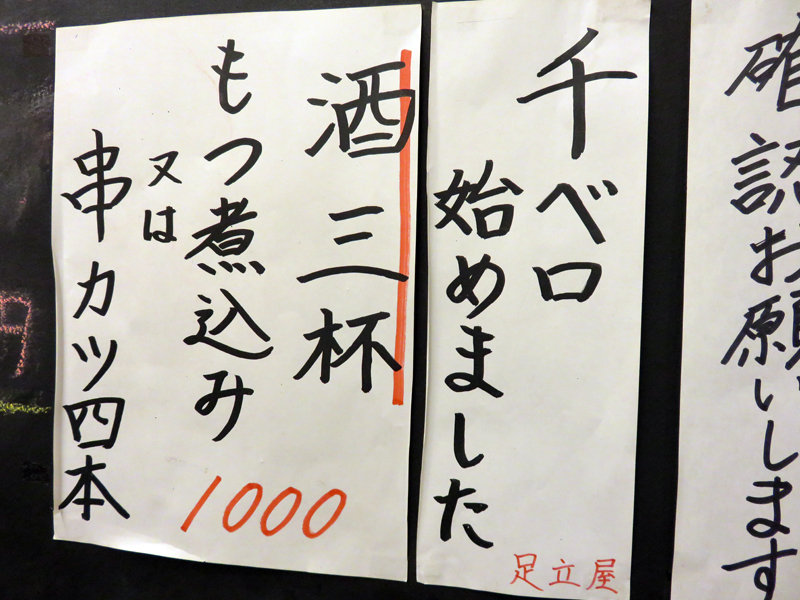 確認お願いします
千ベロ
始めました
足立屋
酒三杯
もつ煮込み
又は
串カツ四本
1000
円